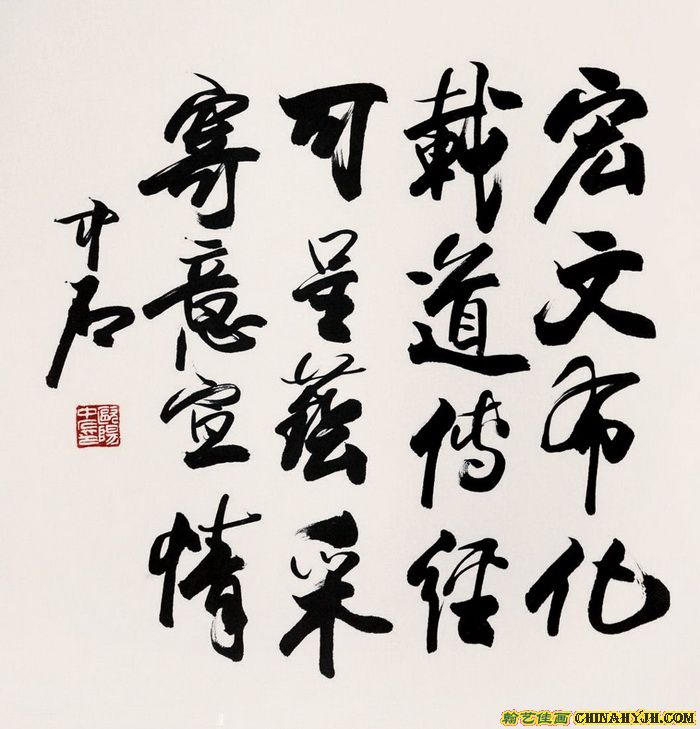 宏文布化
載道傳經
可呈藝采
寄意宣情
中石
歐陽
中石
翰艺佳画 CHINAHYJH.COM